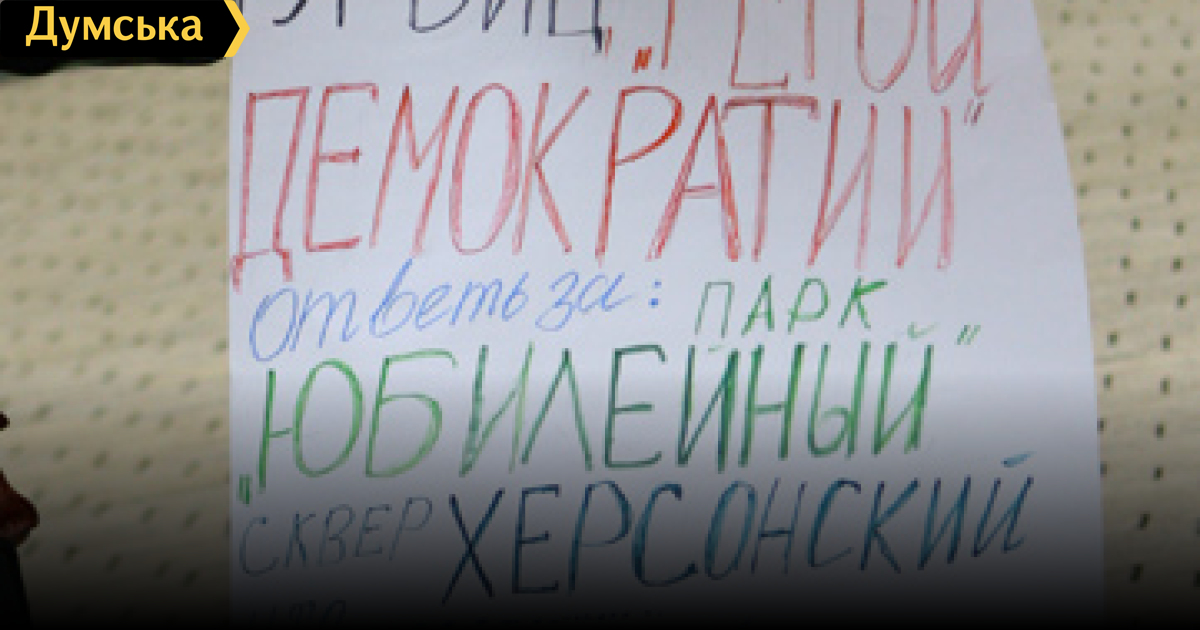 Думська
„ГЕРОЙ
ДЕМОКРАТИИ"
ответь за: ПАРК
„ЮБИЛЕЙНЫЙ"
СКВЕР ХЕРСОНСКИЙ